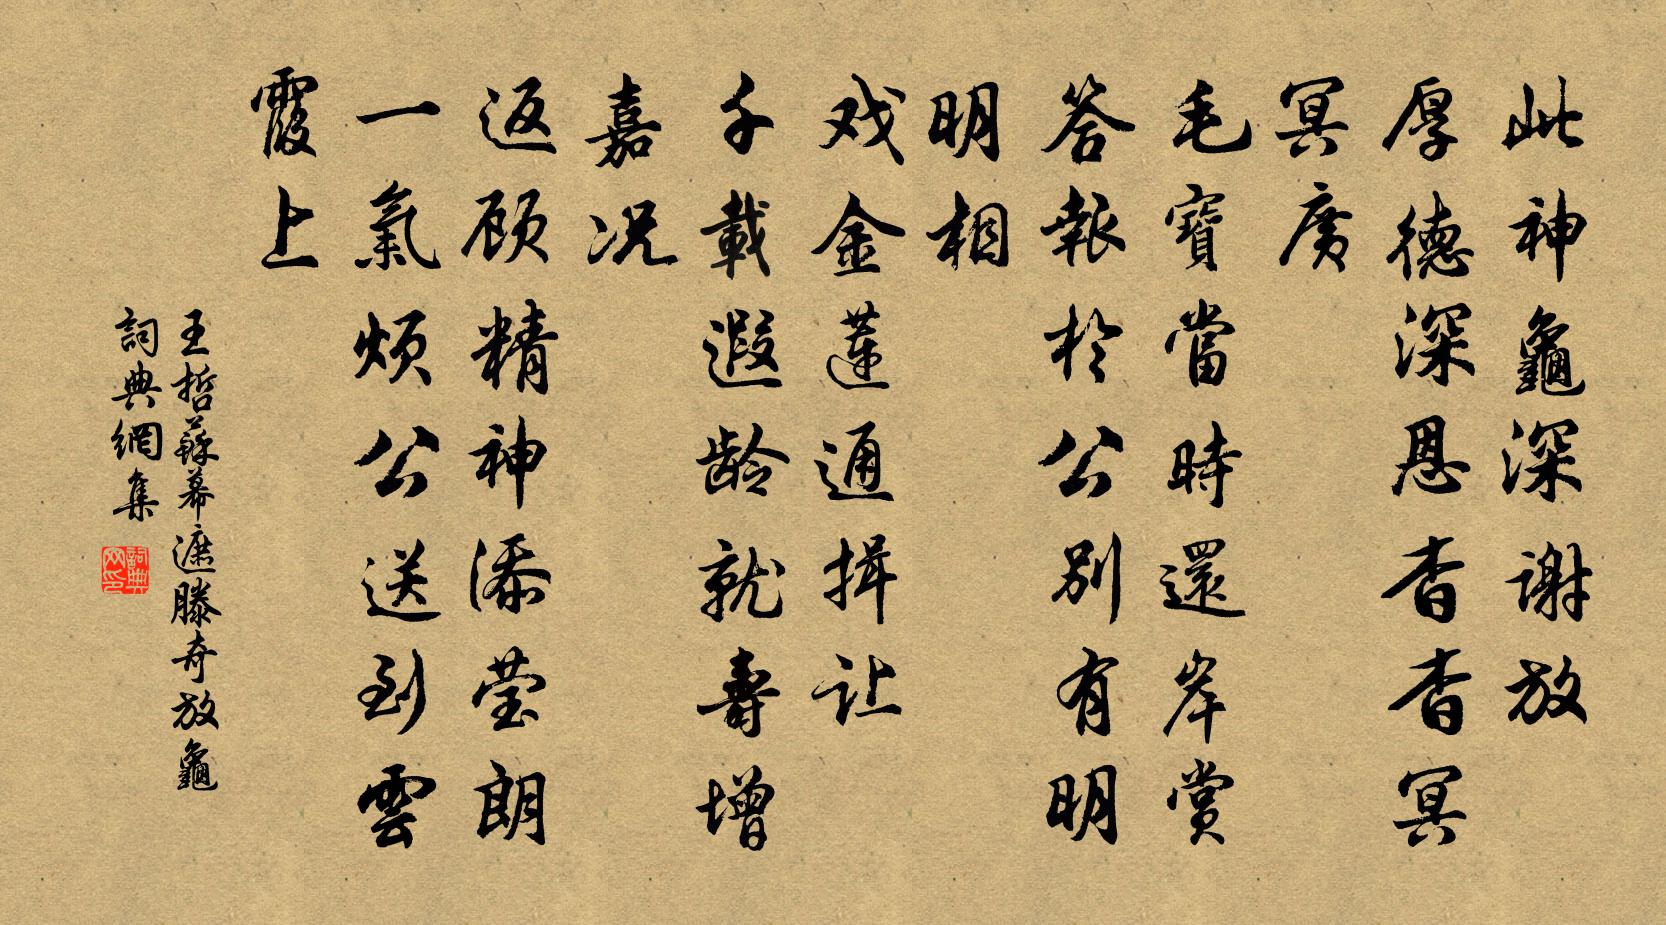 此神龜深謝放
厚德深恩杳杳冥
冥廣
毛寶當時還岸賞
答報於公別有明
明相
戏金蓮通揖让
千載遐龄就壽增
嘉况
返顾精神添莹朗
一氣烦公送到雲
霞上
王哲蘇幕遮滕奇放龜
詞典網集
詞典网印